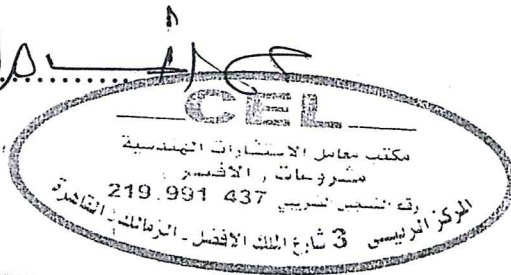 CEL
مكتب معامل الاستشارات الهندسية
مشروعات
رقم التسجيل الضريبي 437 219.991
المركز الرئيسي 3 شارع الملك الافضل - الزمالك - القاهرة